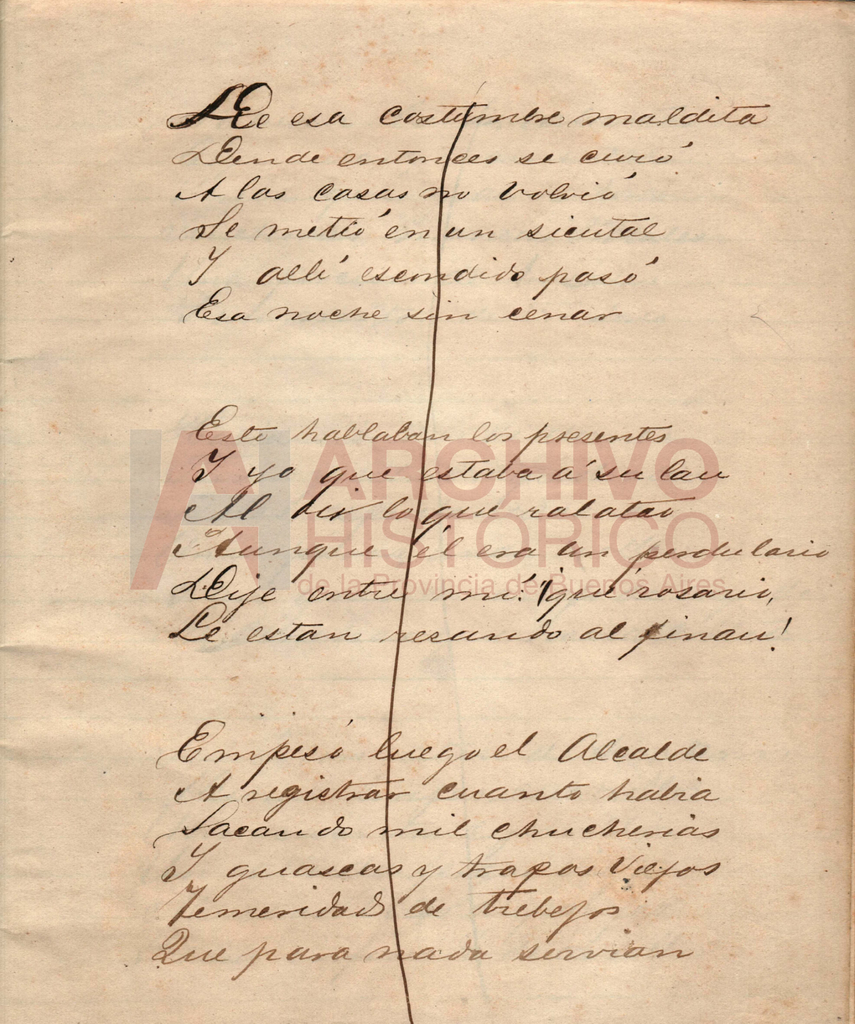 De esa costumbre maldita
Dende entonces se curó
A las casas no volvió
Se metió en un sicutal
Y allí escondido pasó
Esa noche sin cenar
Esto hablaban los presentes
Y yo que estaba á su lau
Al oir lo que relatao
Aunque él era un perdulario
Dije entre mí: ¡qué rosario,
Le estan resando al finau!
Empesó luego el Alcalde
A registrar cuanto habia
Sacando mil chucherias
Y guascas y trapos viejos
Temeridad de trebejos
Que para nada servian
ARCHIVO
HISTÓRICO
de la Provincia de Buenos Aires